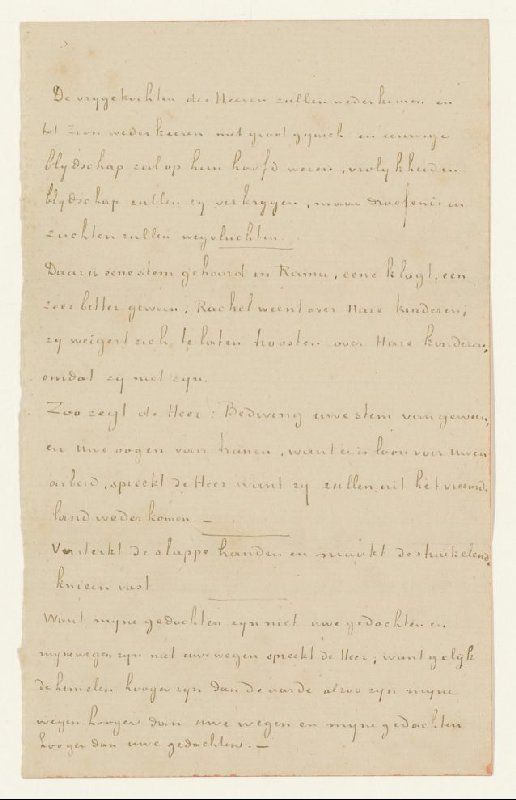 De vrygekochten des Heeren zullen wederkomen en
tot Zion wederkeeren met groot gejuich en eeuwige
blydschap zal op hem hoofd wezen, vrolykheid en
blydschap zullen zy verkrygen, maar droefenis en
zuchten zullen wegvluchten.
Daar is eene stem gehoord in Rama, eene klagt, een
zeer bitter geween, Rachel weent over Hare kinderen;
zy weigert zich te laten troosten over Hare kinderen,
omdat zy niet zyn.
Zoo zegt de Heer: Bedwing uwe stem van geween,
en Uwe oogen van tranen, want er is loon voor Uwen
arbeid, spreekt de Heer want zy zullen uit het vyands
land wederkomen. —
Versterkt de slappe handen en maakt de struikelende
knieen vast
Want myne gedachten zyn niet uwe gedachten en
myne wegen zyn niet uwe wegen spreekt de Heer; want gelyk
de hemelen hooger zyn dan de aarde alzoo zyn myne
wegen hooger dan uwe wegen en myne gedachten
hooger dan uwe gedachten. —